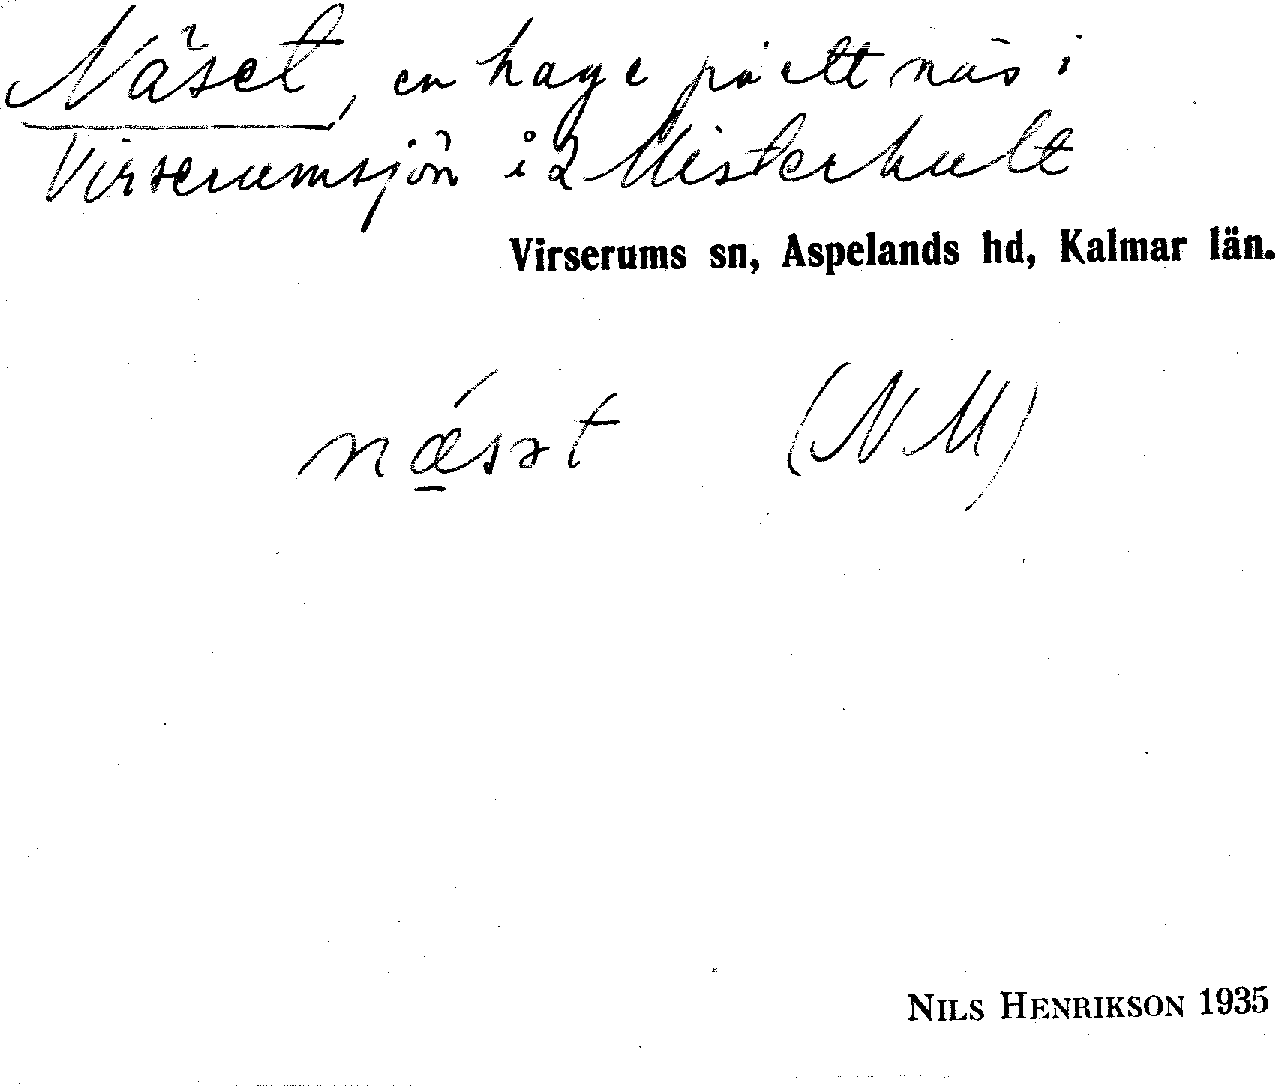 Näset, en hage på ett näs i
Virserumsjön i 2 Misterhult
Virserums sn, Aspelands hd, Kalmar län.
nǽ̠sət (NM)
NILS HENRIKSON 1935